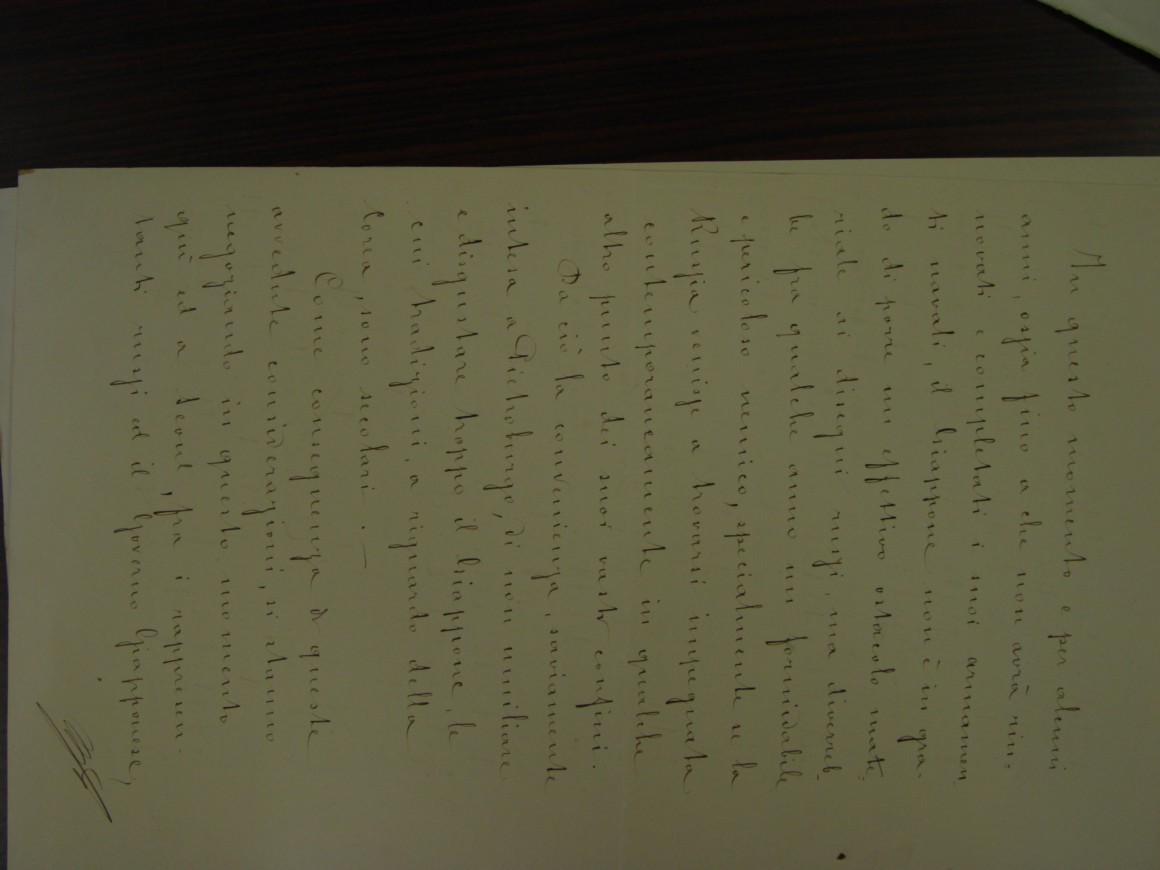 In questo momento e per alcuni
anni, ossia fino a che non avrà rin-
novati e completati i suoi armamen
ti navali, il Giappone non è in gra-
do di porre un effettivo ostacolo mate-
riale ai disegni russi, ma diverreb-
be fra qualche anno un formidabile
e pericoloso nemico, specialmente se la
Russia venisse a trovarsi impegnata
contemporaneamente in qualche
altro punto dei suoi vasti confini.
Da ciò la convenienza, saviamente
intesa a Pietroburgo, di non umiliare
e disgustare troppo il Giappone, le
cui tradizioni, a riguardo della
Corea, sono secolari. —
Come conseguenza di queste
avvedute considerazioni, si stanno
negoziando in questo momento
quì ed a Seoul, fra i rappresen-
tanti russi ed il Governo Giapponese,